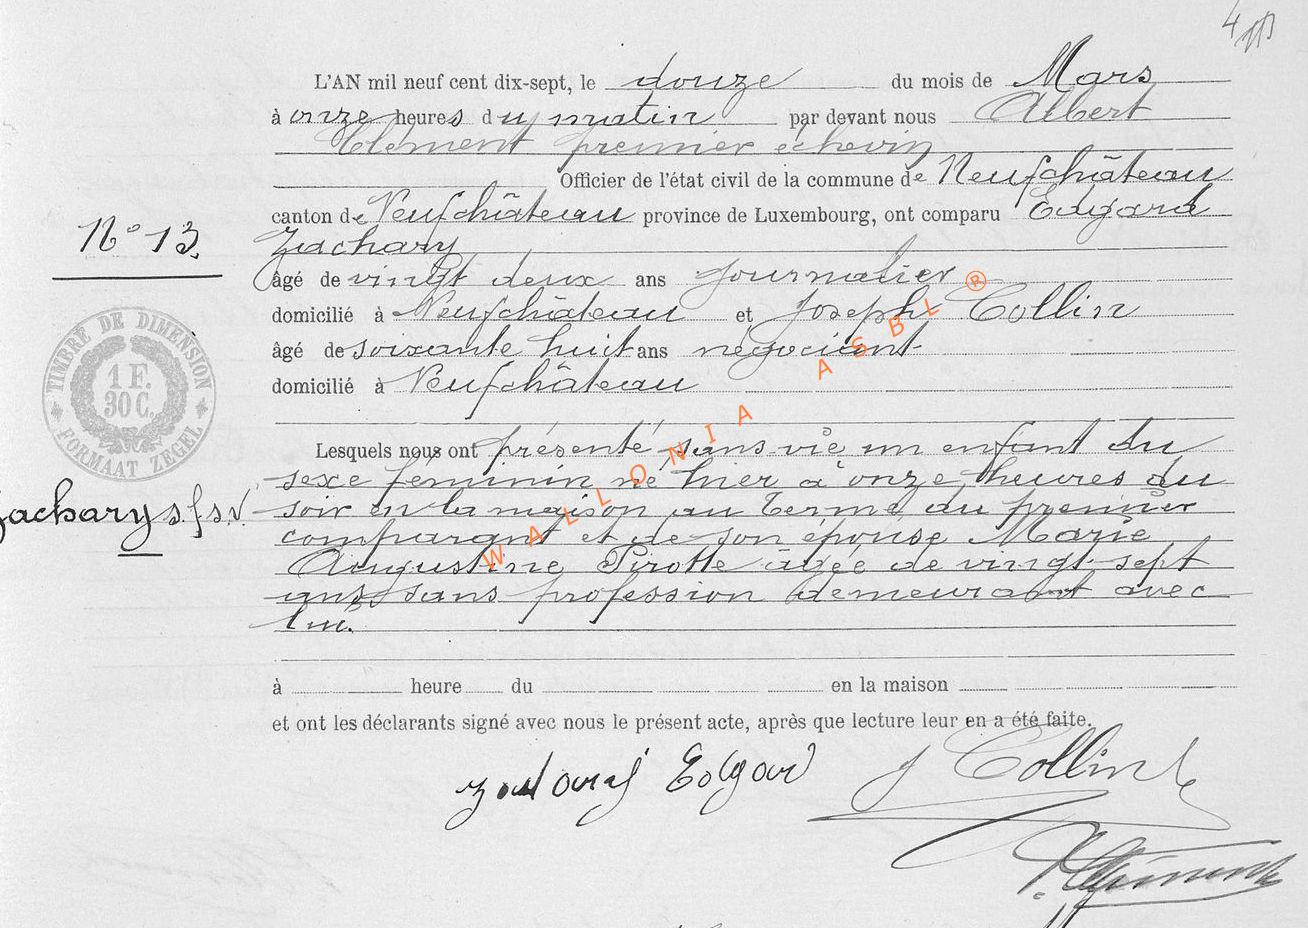 4
L'AN mil neuf cent dix-sept, le douze du mois de Mars
à onze heures du matin par devant nous Albert
Clément premier échevin
Officier de l'état civil de la commune de Neufchâteau
canton de Neufchâteau province de Luxembourg, ont comparu Edgard
Zachary
N° 13.
âgé de vingt deux ans journalier
domicilié à Neufchâteau et Joseph Collin
âgé de soixante huit ans négociant
domicilié à Neufchâteau
TIMBRE DE DIMENSION
1 F.
30 C.
FORMAAT ZEGEL
Lesquels nous ont présenté sans vie un enfant du
sexe féminin né hier à onze heures du
Zachary s.f.s.v.
soir en la maison au Terme du premier
comparant et de son épouse Marie
Augustine Pirotte âgée de vingt-sept
ans sans profession demeurant avec
lui.
WALLONIA ASBL ®
à heure du en la maison
et ont les déclarants signé avec nous le présent acte, après que lecture leur en a été faite.
Zachary Edgar J Collin
Clément